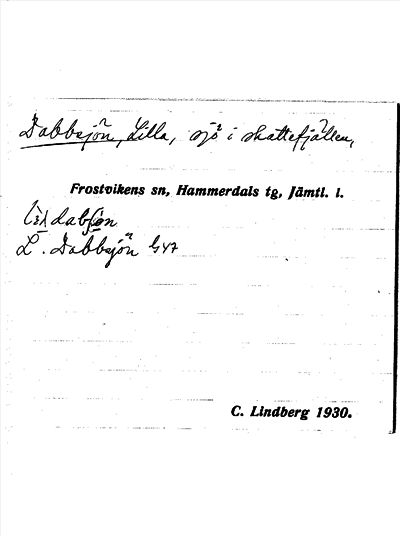 Dabbsjön, Lilla, sjö i skattefjällen,
Frostvikens sn, Hammerdals tg, Jämtl. l.
dabʃøn
L. Dabbsjön G47
C. Lindberg 1930.